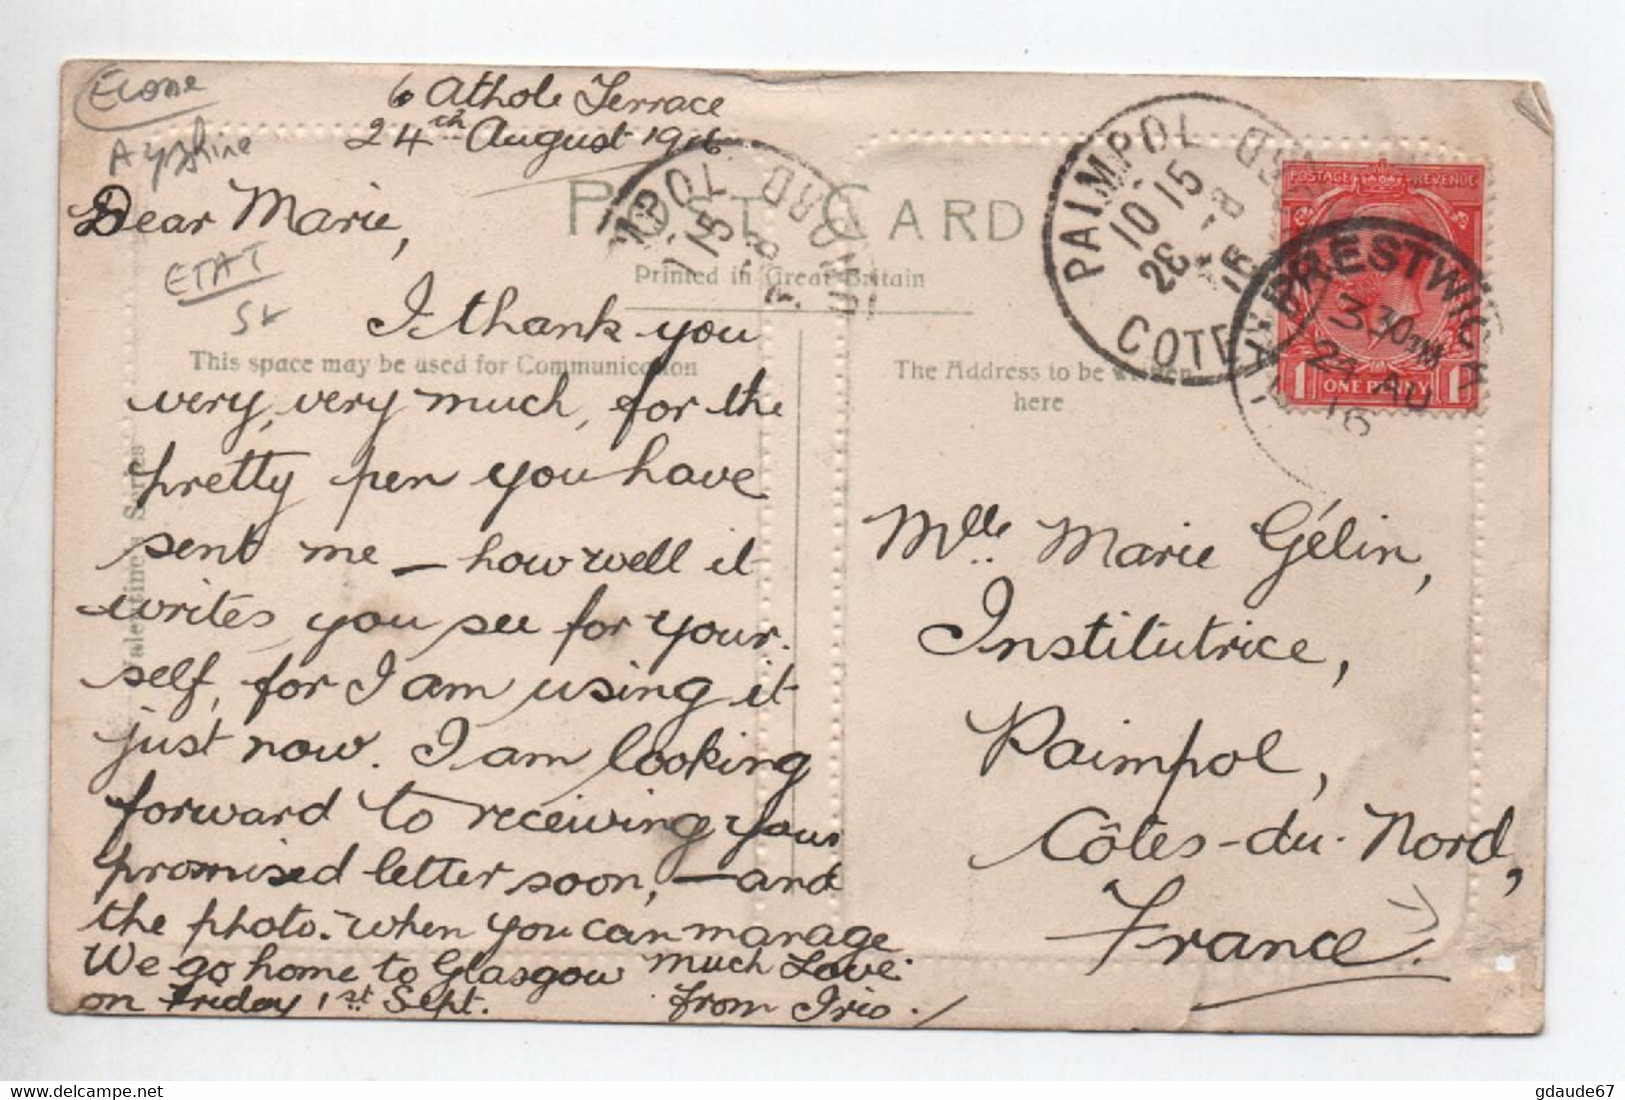 Ecosse
Ayrshire
6 Athole Terrace
24th August 1916
Dear Marie,
ETAT
POST CARD
Printed in Great Britain
I thank you
This space may be used for Communication
very, very much, for the
pretty pen you have
sent me – how well it
writes you see for your-
self, for I am using it
just now. I am looking
forward to receiving your
promised letter soon, – and
the photo. when you can manage
We go home to Glasgow
on Friday 1st Sept.
Much Love
from Iris.
Valentine's Series
PAIMPOL
10 15
26 -8
16
COTES D NORD
MPOL
15
-8
NORD
POSTAGE REVENUE
1 ONE PENNY 1
PRESTWICK
3 30PM
24 AU
16
AYR
The Address to be written
here
Mlle. Marie Gélin,
Institutrice,
Paimpol,
Côtes-du-Nord,
France.
gdaude67